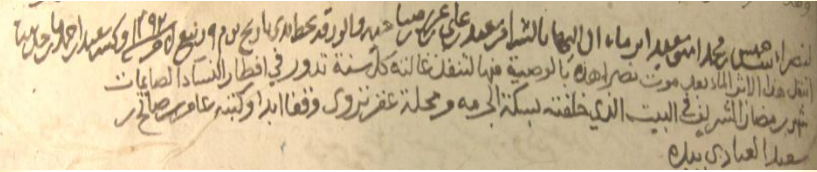 لنصراء بنت خميس بن محمد امبو سعيد ابن ماء ال اليها بالشراء من سعيد بن علي بن عزيز صبا حيه والورقة بخط يدي بتاريخ يوم ٩ ربيع ١٣٩٢ وكتبه سعيد بن احمد بن
انتقل هذا الاثر الماء بعد موت نصرا هذه بالوصية منها لتنفذ غالته كل سنة تدور في افطار النساء الصائمات
شهر رمضان الشريف في البيت الذي خلفته بسكة الجرمه ومحلة عقر نزوى وقفا ابدا وكتبه عامر بن صالح بن
سعيد العبادي بيده